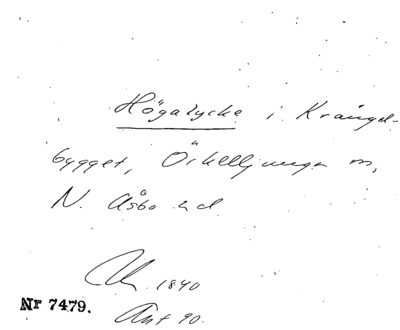 Högalycke i Krångel-
bygget, Örkelljunga sn,
N. Åsbo hd.
1840
Nr 7479.
Ant 90.